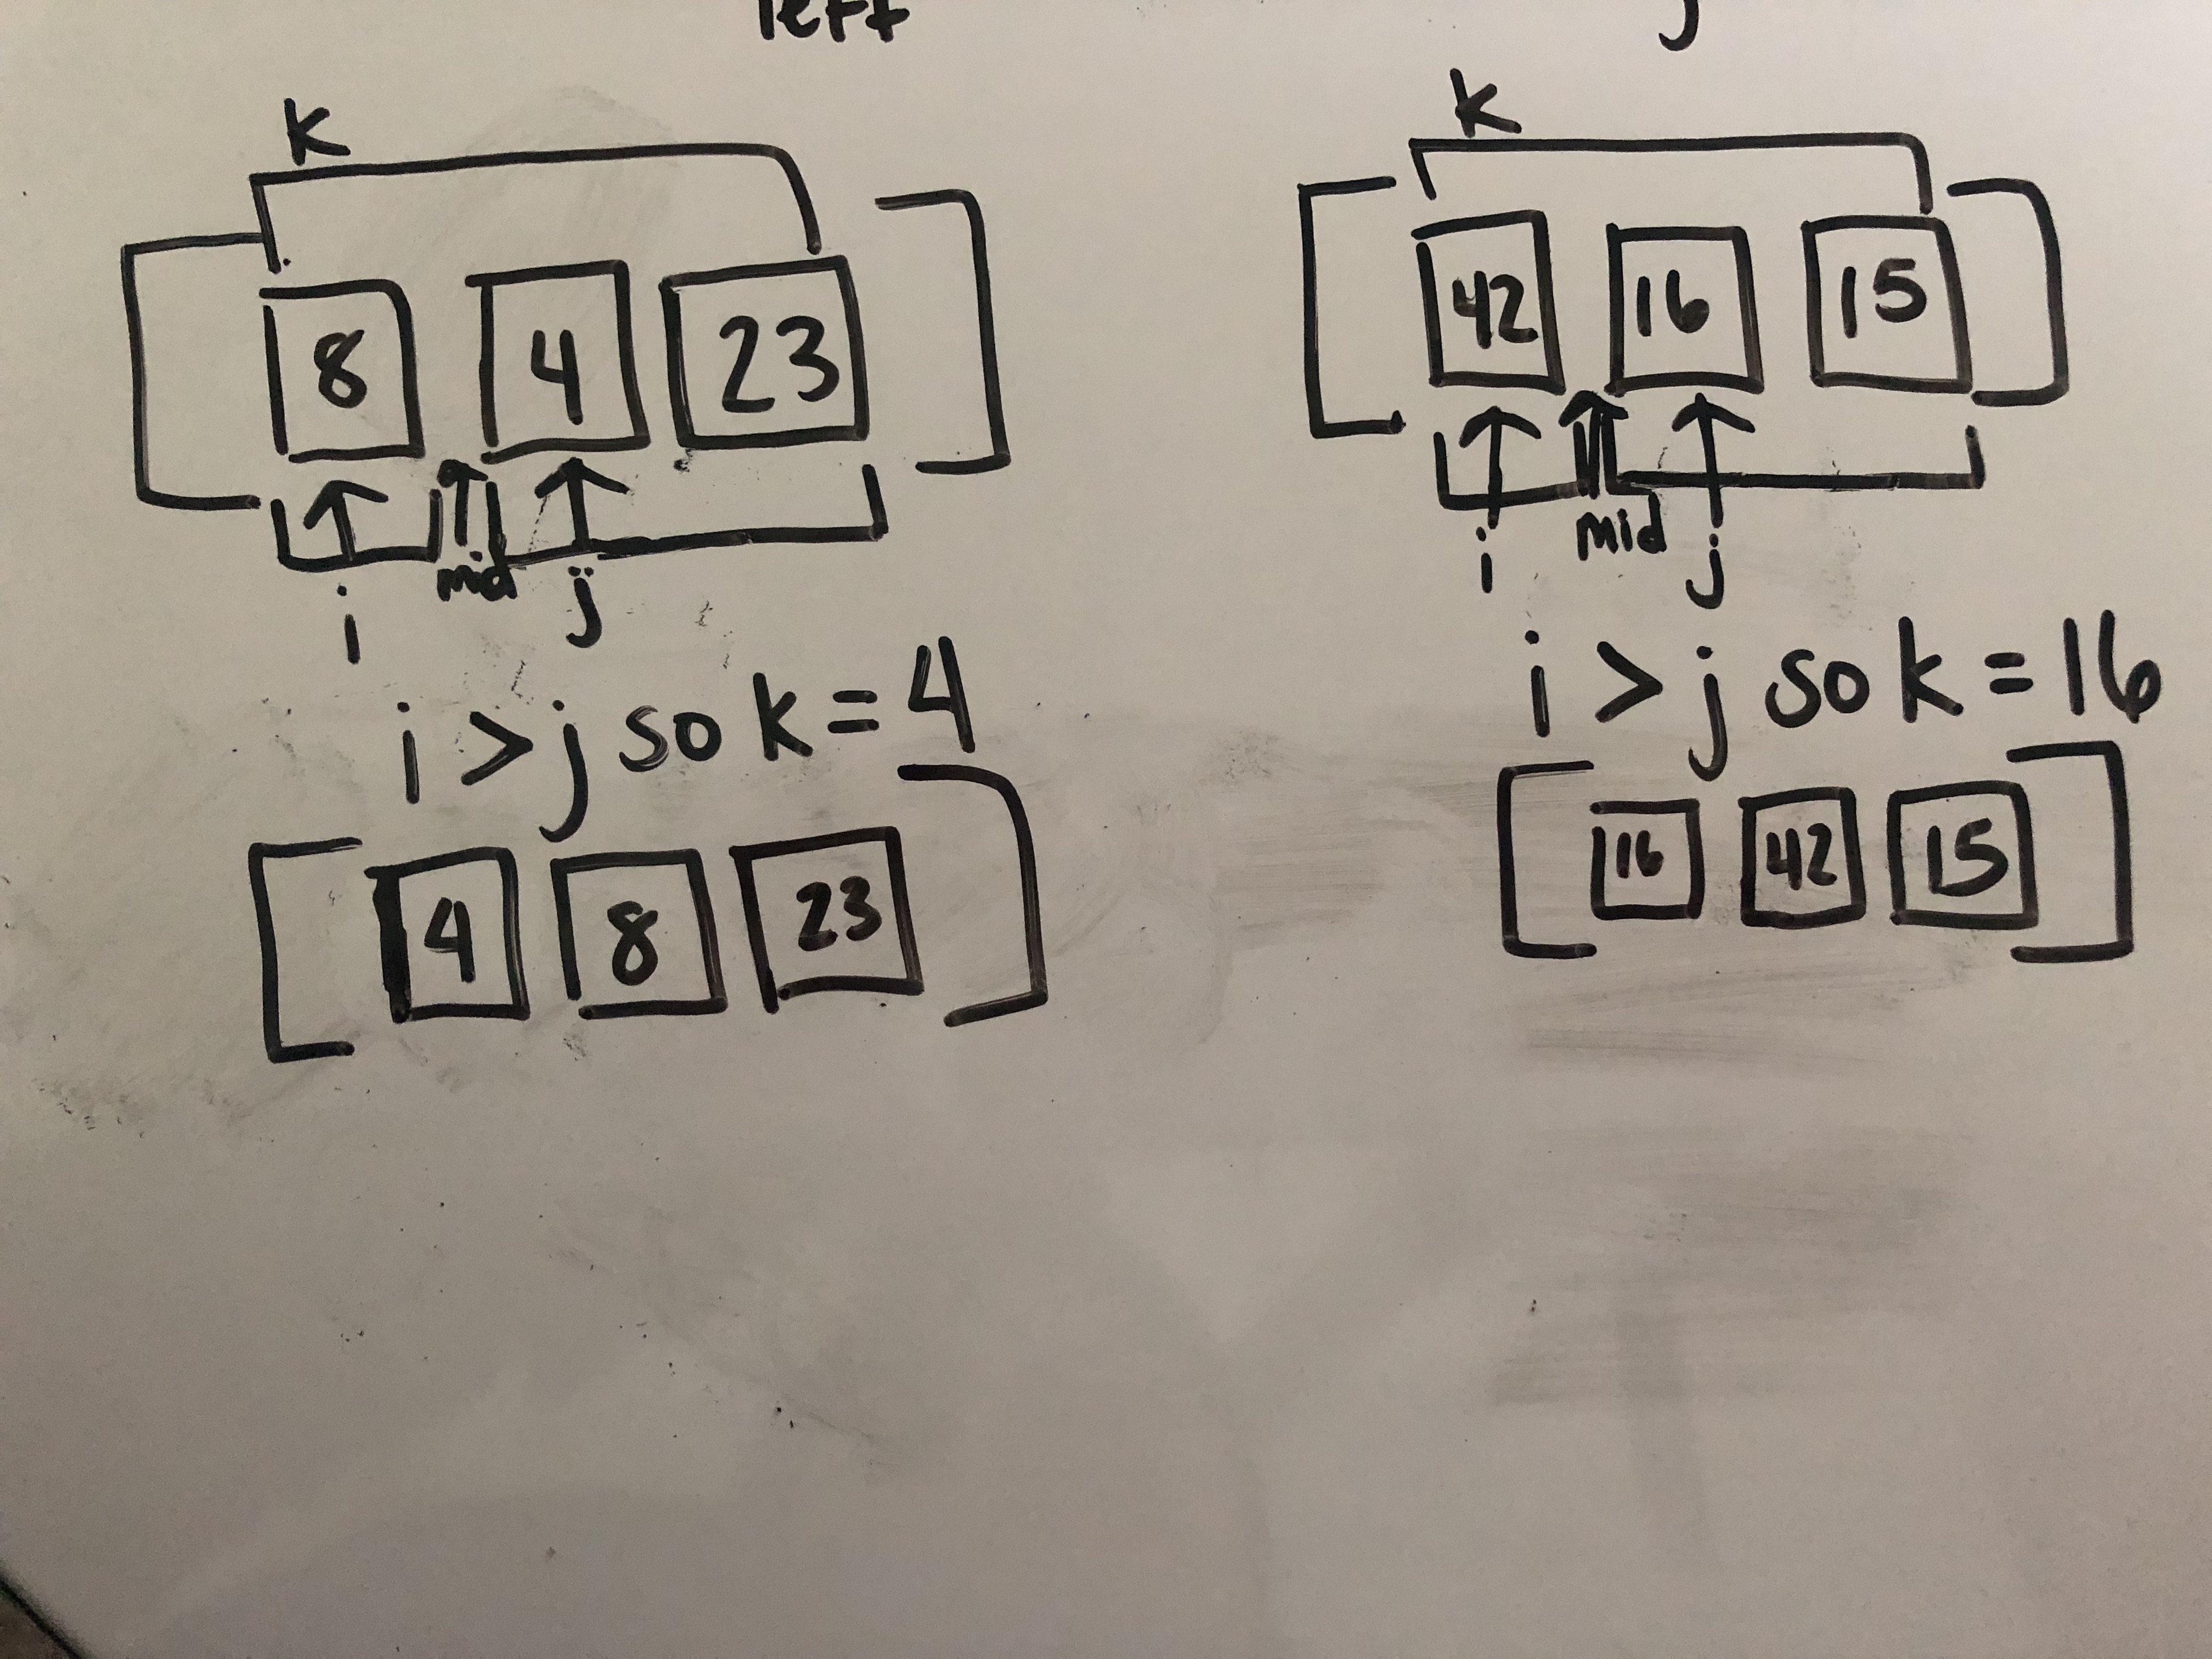 left
j
k
8 4 23
i mid j
i > j so k = 4
4 8 23
k
42 16 15
i mid j
i > j so k = 16
16 42 15